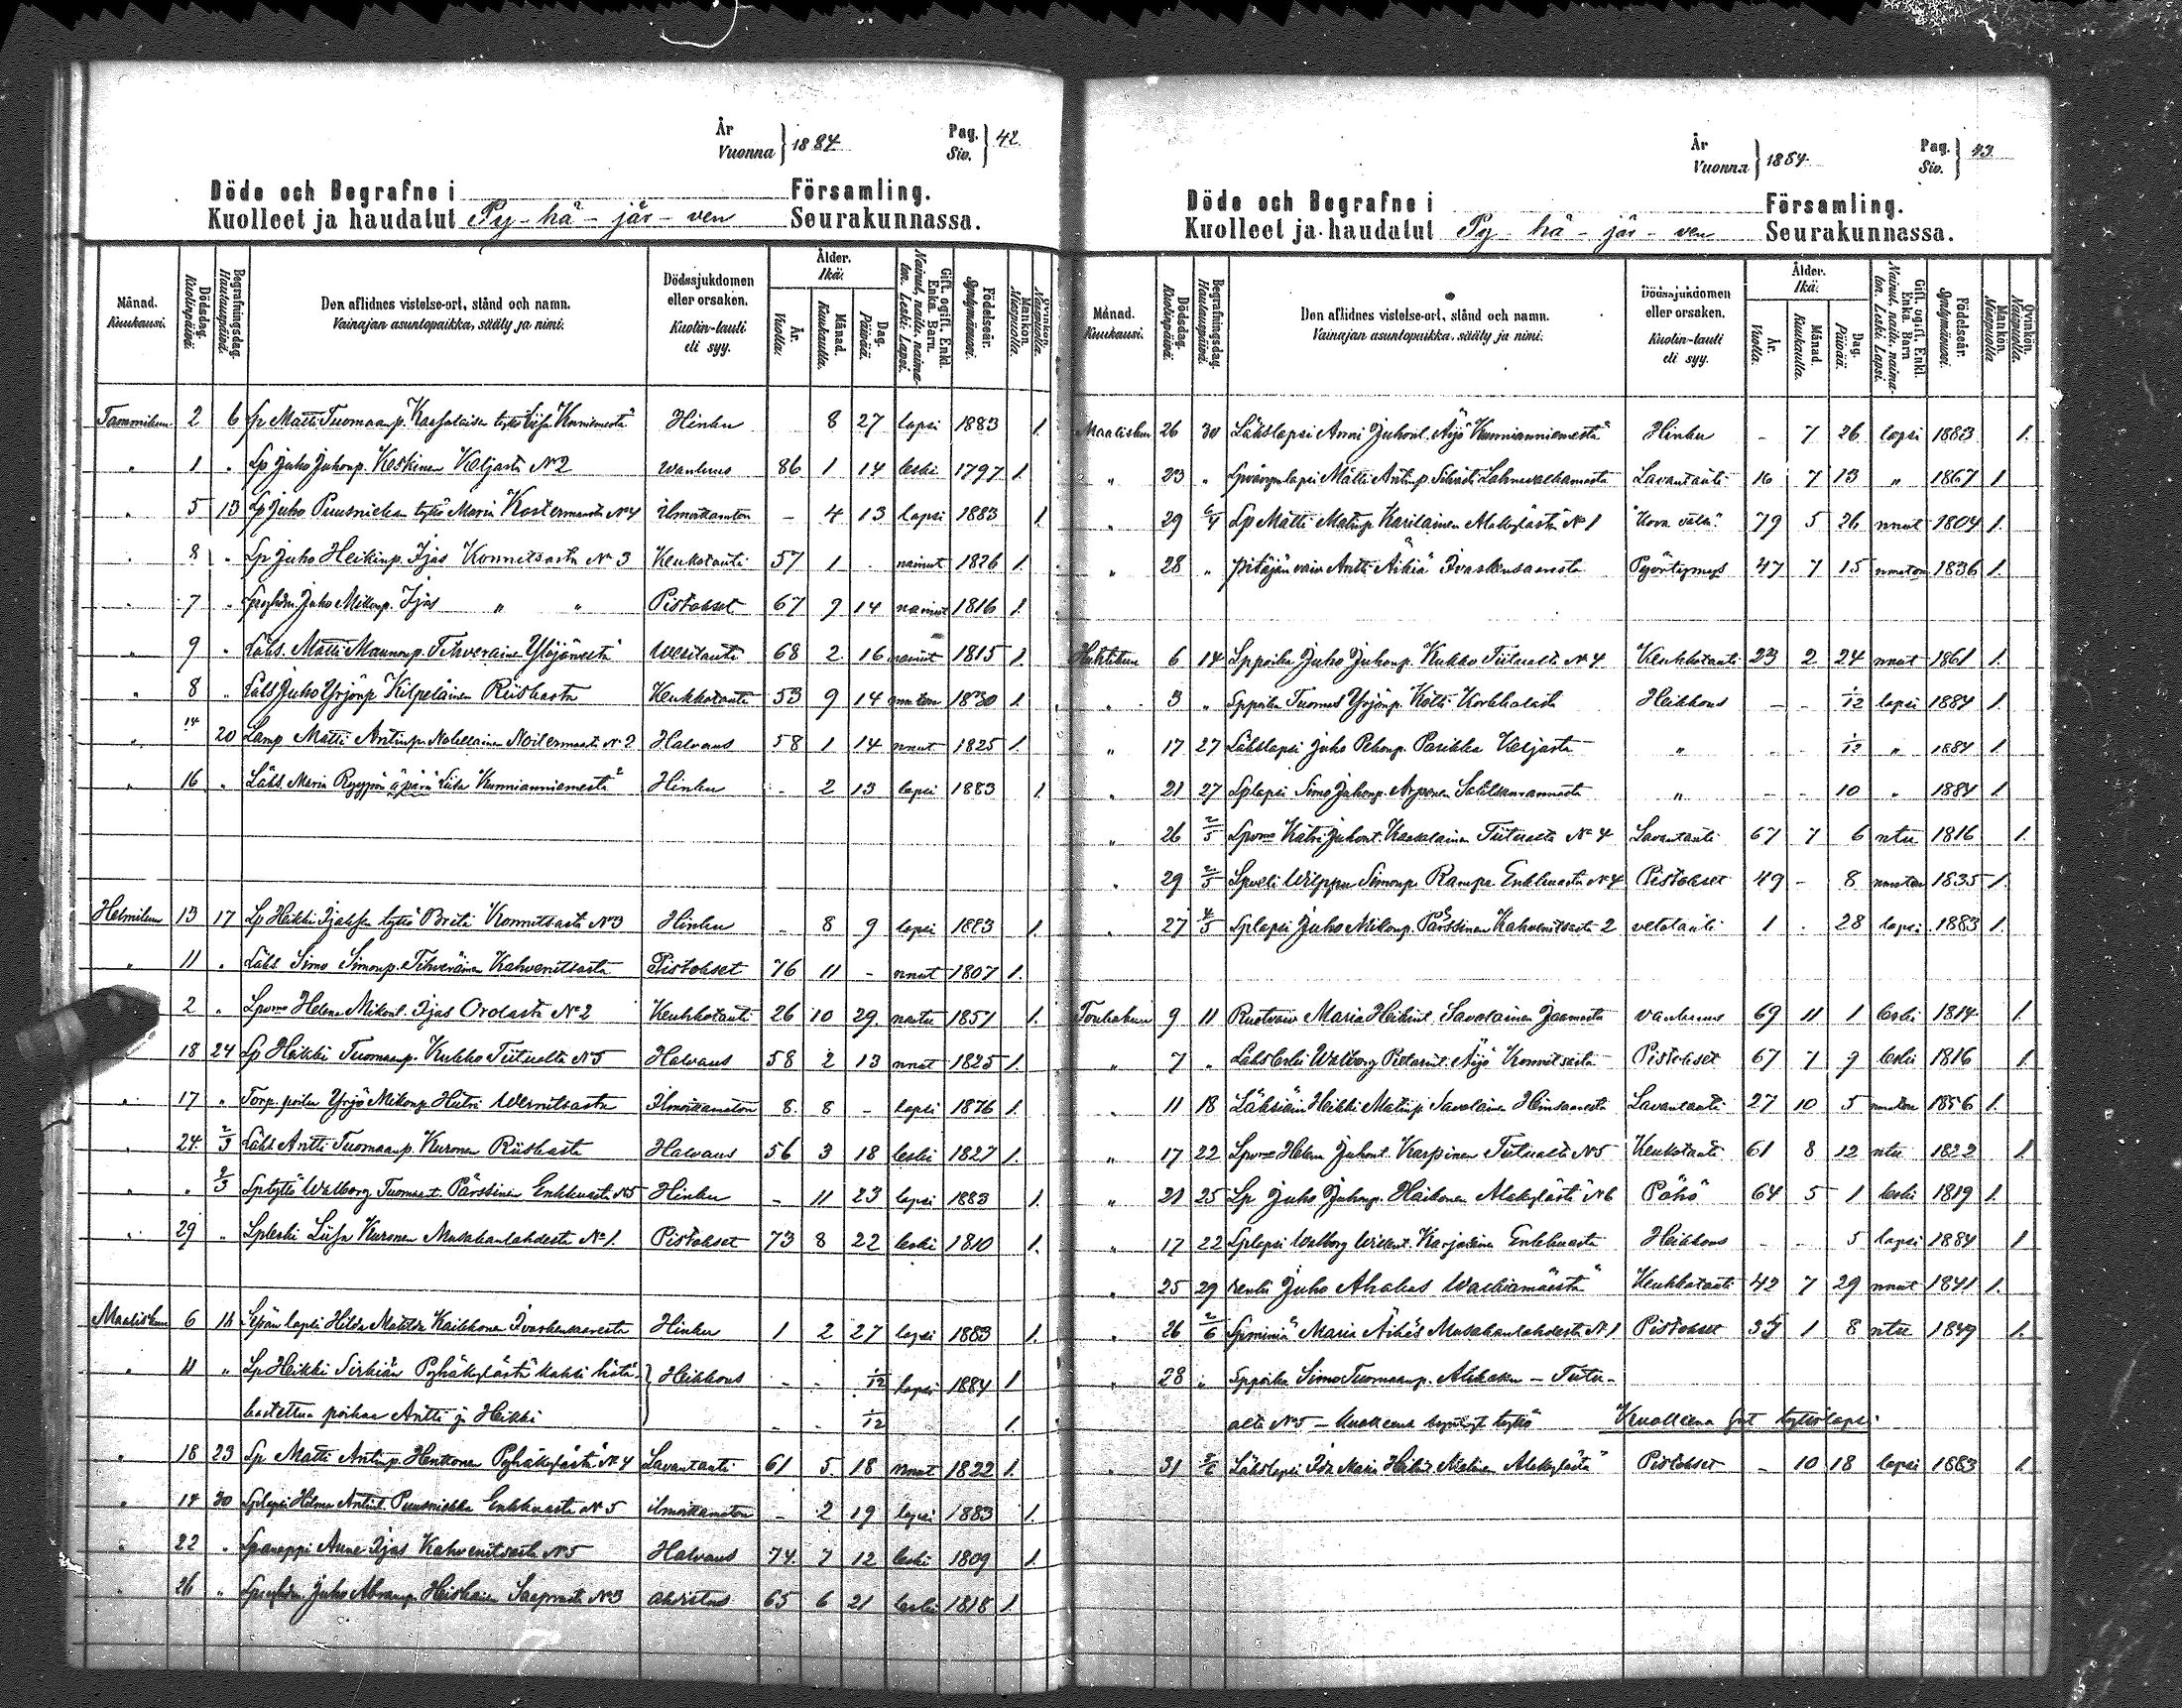 År
Vuonna } 1884
Pag.
Siv. } 42.
Döde och Begrafne i Församling.
Kuolleet ja haudatut Py-hä-jär-ven Seurakunnassa.
Månad. Kuukausi.
Dödsdag. Kuolinpäivä.
Begrafningsdag. Hautauspäivä.
Den aflidnes vistelse-ort, stånd och namn. Vainajan asuntopaikka, sääty ja nimi.
Dödssjukdomen eller orsaken. Kuolin-tauti eli syy.
Ålder. Ikä.
År. Vuotta.
Månad. Kuukautta.
Dag. Päivää.
Gift, ogift, Enkl. Enka. Barn. Nainut, naitu, naimaton. Leski. Lapsi.
Födelseår. Syntymävuosi.
Mankön. Miespuolia.
Qvinkön. Naispuolia.
Tammikuu 2 6 Lp Matti Tuomaanp. Kaasalaisen tyttö Kunnianniemestä Hinku 8 27 lapsi 1883 1.
" 1 " Lp Juho Juhonp. Keskinen Keljasta No 2 Wanhuus 86 1 14 leski 1797 1.
" 5 13 Lp Juho Puusniekan tyttö Maria No 4 ilmoittamaton - 4 13 lapsi 1883 1.
" 8 " Lp Juho Heikinp. Ijas Konnitsasta No 3 Keuhkotauti 57 1 . nainut 1826 1.
" 7 " Juho Mikonp. Ijas " " Pistokset 67 9 14 nainut 1816 1.
" 9 " Läks. Matti Maunonp. Tihveräinen Yläjärveltä Weritauti 68 2 16 nainut 1815 1.
" 8 " Läks Juho Yrjönp Kilpeläinen Riiskasta Keukkotauti 53 9 14 nmaton 1830 1.
" 14 20 Lamp Matti Antinp. Noitermaasta No 2 Halvaus 58 1 14 nnut 1825 1.
" 16 " Läks. Maria äpärä Kunnianniemestä Hinku - 2 13 lapsi 1883 1.
Helmikuu 13 17 Lp Heikki tyttö Brita Konnitsasta No 3 Hinku - 8 9 lapsi 1883 1.
" 11 " Läks. Simo Simonp. Tihveräinen Kahvenitsasta Pistokset 76 11 - nnut 1807 1.
2 " Helena Mikont. Ijas Orolasta No 2 Keuhkotauti 26 10 29. naitu 1857 1.
18 24 Lp Heikki Tuomaanp. Kukko Tiitualta No 5 Halvaus 58 2 13 nnut 1825 1.
" 17 " Torp. poika Yrjö Mikonp. Hutri Wernitsasta Ilmoittamaton 8. 8 - lapsi 1876 1.
" 24. 2/3 Läks Antti Tuomaanp. Kuronen Riiskasta Halvaus 56 3 18 leski 1827 1.
" " 2/3 Lptyttö Walborg Tuomaat. Pärssinen Enkkuasta No 5 Hinku - 11 23 lapsi 1883 1.
" 29 " Lpleski Liisa Kuronen Musakanlahdesta No 1. Pistokset 73 8 22 leski 1810 1.
Maaliskuu 6 Sepän lapsi Hilda Matilda Kaikkonen Ivaskensaaresta Hinku 1 2 27 lapsi 1883 1.
" 11 " Lp Heikki Sirkiän Pyhäkylästä kaksi hätä- } Heikkous - - 1/12 lapsi 1884 1
kastettua poikaa Antti ja Heikki - - 1/12 1.
" 18 23 Lp Matti Antinp. Henttonen Pyhäkylästä No 4 Lavantauti 61 5. 18 nnut 1822 1.
" 14 30 Lplapsi Hilma Antint. Puusniekka Enkkuasta No 5 ilmoittamaton - 2 19 lapsi 1883 1.
" 22 " Lpanoppi Anna Ijas Kahvenitsasta No 5 Halvaus 74. 7 12 leski 1809 1.
" 26 " Juho Abramp. Heiskanen No 3 ahdistus 65 6 21 leski 1818 1.
År
Vuonna } 1884.
Pag.
Siv. } 43.
Döde och Begrafne i Församling.
Kuolleet ja haudatut Py-hä-jär-ven Seurakunnassa.
Månad. Kuukausi.
Dödsdag. Kuolinpäivä.
Begrafningsdag. Hautauspäivä.
Den aflidnes vistelse-ort, stånd och namn. Vainajan asuntopaikka, sääty ja nimi.
Dödssjukdomen eller orsaken. Kuolin-tauti eli syy.
Ålder. Ikä.
År. Vuotta.
Månad. Kuukautta.
Dag. Päivää.
Gift, ogift, Enkl. Enka. Barn. Nainut, naitu, naimaton. Leski. Lapsi.
Födelseår. Syntymävuosi.
Mankön. Miespuolia.
Qvinkön. Naispuolia.
Maaliskuu 26 30 Läkslapsi Anni Juhont. Äijö Kunnianniemestä Hinku - 7 26 lapsi 1883 1.
" 23 " Matti Antinp. Lahnavalkamasta Lavantauti 16 7 13 " 1867 1.
" 29 6/4 Lp Matti Matinp. Karilainen Alakylästä No 1 "Kova vatsa" 79 5 26 nnut 1804 1.
" 28 " pitäjän vaiv Antti Äikiä Ivaskensaaresta 47 7 15 nmaton 1836 1.
Huhtikuu 6 14 Lppoika Juho Juhonp. Kukko Tiitualta No 4 Keuhkotauti 23 2 24 nnut 1861 1.
" 3 " Lppoika Tuomas Yrjönp. Korkkalasta Heikkous - - 1/12 lapsi 1884 1.
" 17 27 Läkslapsi Juho Pekonp. Parikka Keljasta " - - 1/12 " 1884 1.
" 21 27 Lplapsi Simo Juhonp. Arponen " - - 10 " 1884 1.
" 26 2/5 Katri Juhont. Kaasalainen Tiitualta No 4 Lavantauti 67 7 6 ntu 1816 1.
" 29 2/5 Lpveli Wilppu Simonp. Rampa Enkkuasta No 4 Pistokset 49 - 8 nmaton 1835 1.
" 27 4/5 Lplapsi Juho Mikonp. Pärssinen Kahvenitsasta 2 vetotauti 1 . 28 lapsi 1883 1.
Toukokuu 9 11 Maria Heikint. Savolainen Jaamasta vanhuus 69 11 1 leski 1814 1.
" 7 " Läksleski Walborg Pietarint. Äijö Konnitsasta Pistokset 67 7 9 leski 1816 1.
" 11 18 Heikki Matinp. Savolainen Lavantauti 27 10 5 nmaton 1856 1.
" 17 22 Helena Juhont. Karpinen Tiitualta No 5 Keuhkotauti 61 8 12 ntu 1822 1
" 21 25 Lp Juho Juhonp. Haikonen Alakylästä No 6 Pöhö 64 5 1 leski 1819 1.
" 17 22 Lplapsi Walborg Karjalainen Enkkuasta Heikkous - - 5 lapsi 1884 1
" 25 29 renki Juho Ahokas Keuhkotauti 42 7 29 nnut 1841 1.
" 26 2/6 Lpminiä Maria Äikäs Musakanlahdesta No 1 Pistokset 35 1 8 ntu 1849 1.
" 28 " Lppoika Simo Tuomaanp. Ahkaku - Tiitu-
alta No 5 - kuolleena synt tyttö Kuolleena synt tyttölapsi
" 31 Läkslapsi Ida Maria Heikint. Alakylästä Pistokset - 10 18 lapsi 1883 1